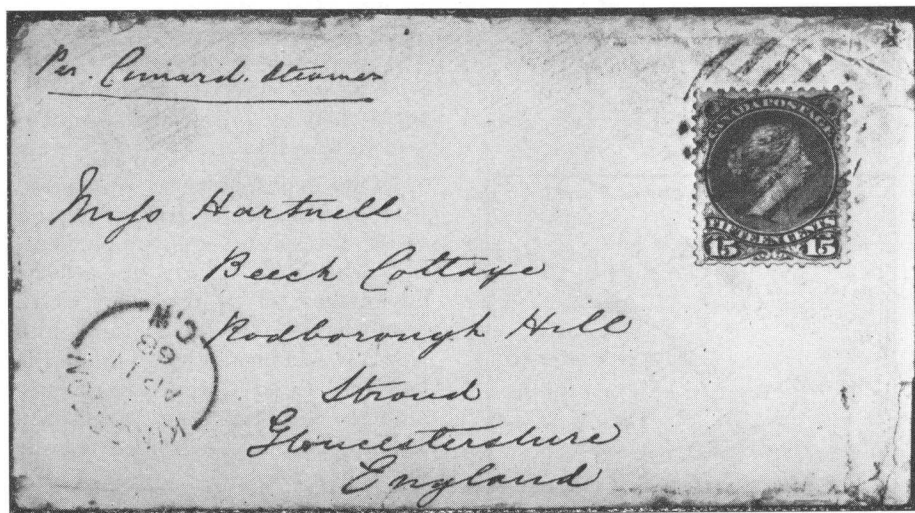 Per. Cunard. Steamer
CANADA POSTAGE
FIFTEEN CENTS
15 15
Miss Hartnell
Beech Cottage
Rodborough Hill
Stroud
Gloucestershire
England
KINGSTON
C.W
AP 11
68